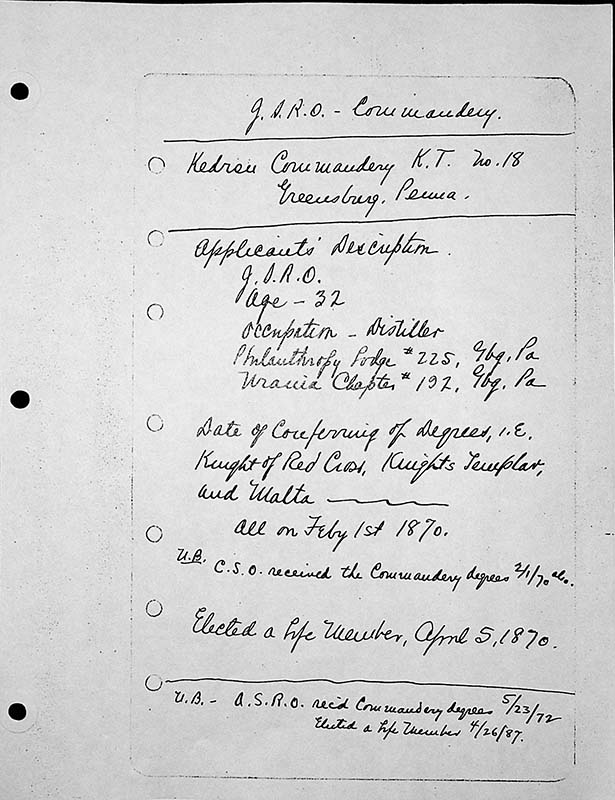 J.S.R.O. - Commandery.
Kedron Commandery K.T. No. 18
Greensburg, Penna.
Applicants' Description.
J.S.R.O.
Age - 32
Occupation - Distiller
Philanthropy Lodge # 225, Gbg, Pa
Urania Chapter # 192, Gbg, Pa
Date of Conferring of Degrees, i.E.
Knight of Red Cross, Knights Templar,
and Malta
all on Feby 1st 1870.
N.B. C.S.O. received the Commandery degrees 2/1/70 also.
Elected a Life Member, April 5, 1870.
N.B. - A.S.R.O. rec'd Commandery degrees 5/23/72
Elected a Life Member 4/26/87.